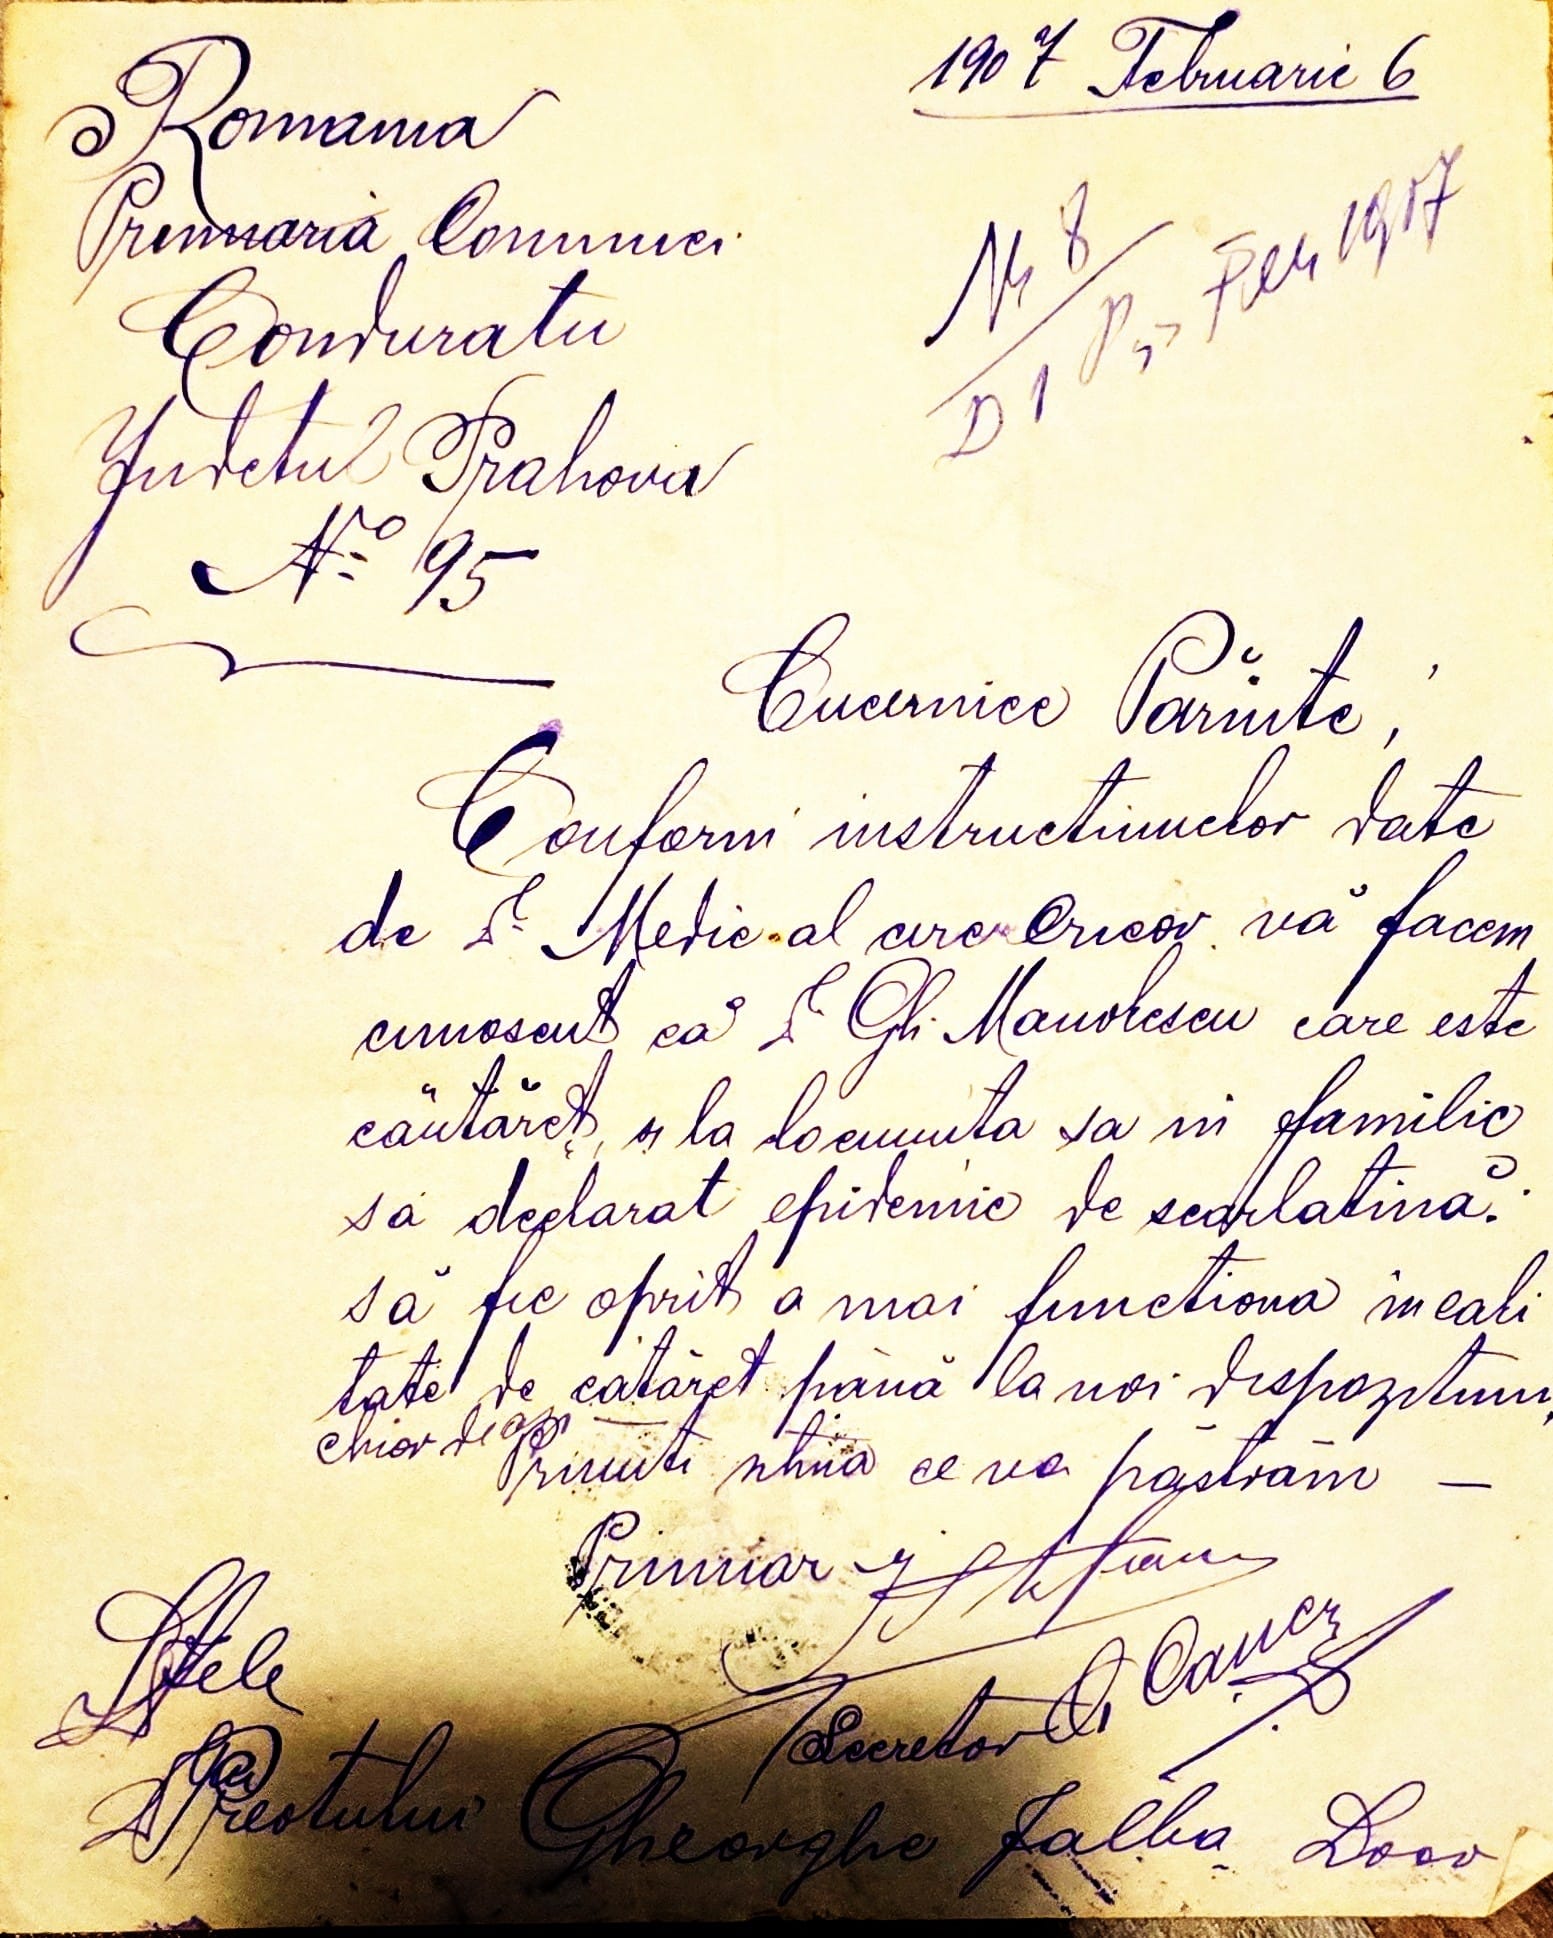 1907 Februarie 6
Romania
Primaria Comunei
Conduratu
Judetul Prahova
No 95
Nr 8
D 1 Feb 1907
Cucernice Părinte,
Conform instructiunilor date
de Dl Medic al circ Cricov vă facem
cunoscut că Dl Gh. Manolescu care este
cântăret, si la locuinta sa in familie
sa declarat epidemie de scarlatină.
să fie oprit a mai functiona in cali
tate de cătăret până la noi dispozitiuni,
chior de azi
Primiti stima ce va păstrăm —
Primar
Secretar
Sfele
Sale
Preotului Gheorghe Jalba Loco